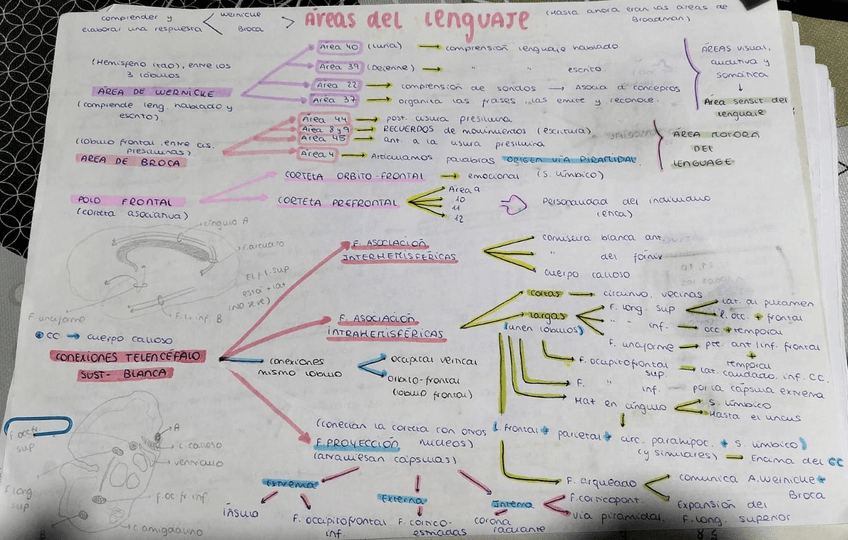 comprender y
elaborar una respuesta < Wernicke
Broca >
Áreas del lenguaje
(Hasta ahora eran las áreas de
Broadman)
(Hemisferio izqo), entre los
3 lóbulos
ÁREA DE WERNICKE
(comprende leng. hablado y
escrito).
Área 40 (Luria) → comprensión lenguaje hablado
Área 39 (Dejerine) → " " escrito
Área 22 → comprensión de sonidos → asocia a conceptos
Área 37 → organiza las frases, las emite y reconoce.
ÁREAS VISUAL,
auditiva y
somática
↓
Área sensit del
lenguaje
(lóbulo frontal, entre as.
presilvianas)
AREA DE BROCA
Área 44 → post. cisura presilviana
Área 8 y 9 → RECUERDOS de movimientos (escritura)
Área 45 → ant. a la cisura presilviana
Área 4 → Articulamos palabras ORIGEN VÍA PIRAMIDAL
ÁREA MOTORA
DEL
LENGUAGE
POLO FRONTAL
(corteza asociativa)
CORTEZA ORBITO-FRONTAL → emocional (S. límbico)
CORTEZA PREFRONTAL
Area 9
10
11
12
Personalidad del individuo
(ética)
cíngulo A
F. arcuato
El f. l. sup
está + lat
(no se ve)
F. unciforme
F. l. inf. B
CC → cuerpo calloso
CONEXIONES TELENCÉFALO
SUST- BLANCA
F. ASOCIACIÓN
INTERHEMISFÉRICAS
comisura blanca ant.
" del fórnix
cuerpo calloso
F. ASOCIACIÓN
INTRAHEMISFÉRICAS
cortas → circunvo. vecinas
largas
(unen lóbulos)
F. long. sup
lat. al putamen
l. occ. + frontal
" " inf. → occ + temporal
F. unciforme → pte. ant linf. frontal
+
temporal
F. occipitofrontal sup → lat. caudado. inf. CC.
F. " inf. → por la cápsula extrema
Haz en cíngulo
S. límbico
Hasta el uncus
(L. frontal + parietal + circ. parahipoc. + S. límbico)
(y similares) → Encima del CC
F. arqueado
comunica A. Wernicke +
Broca
Expansión del
F. long. superior
conexiones
mismo lóbulo
occipital vertical
orbito-frontal
(lóbulo frontal)
(conectan la corteza con otros
núcleos)
F. PROYECCIÓN
(atraviesan cápsulas)
Extrema
ínsula
F. occipitofrontal
inf.
Externa
F. cortico-
estriadas
Interna
corona
radiante
F. corticopont.
Vía piramidal.
F. occ fr.
sup
F. long
sup
B
A
C. calloso
ventrículo
F. oc fr inf
C. amigdalino